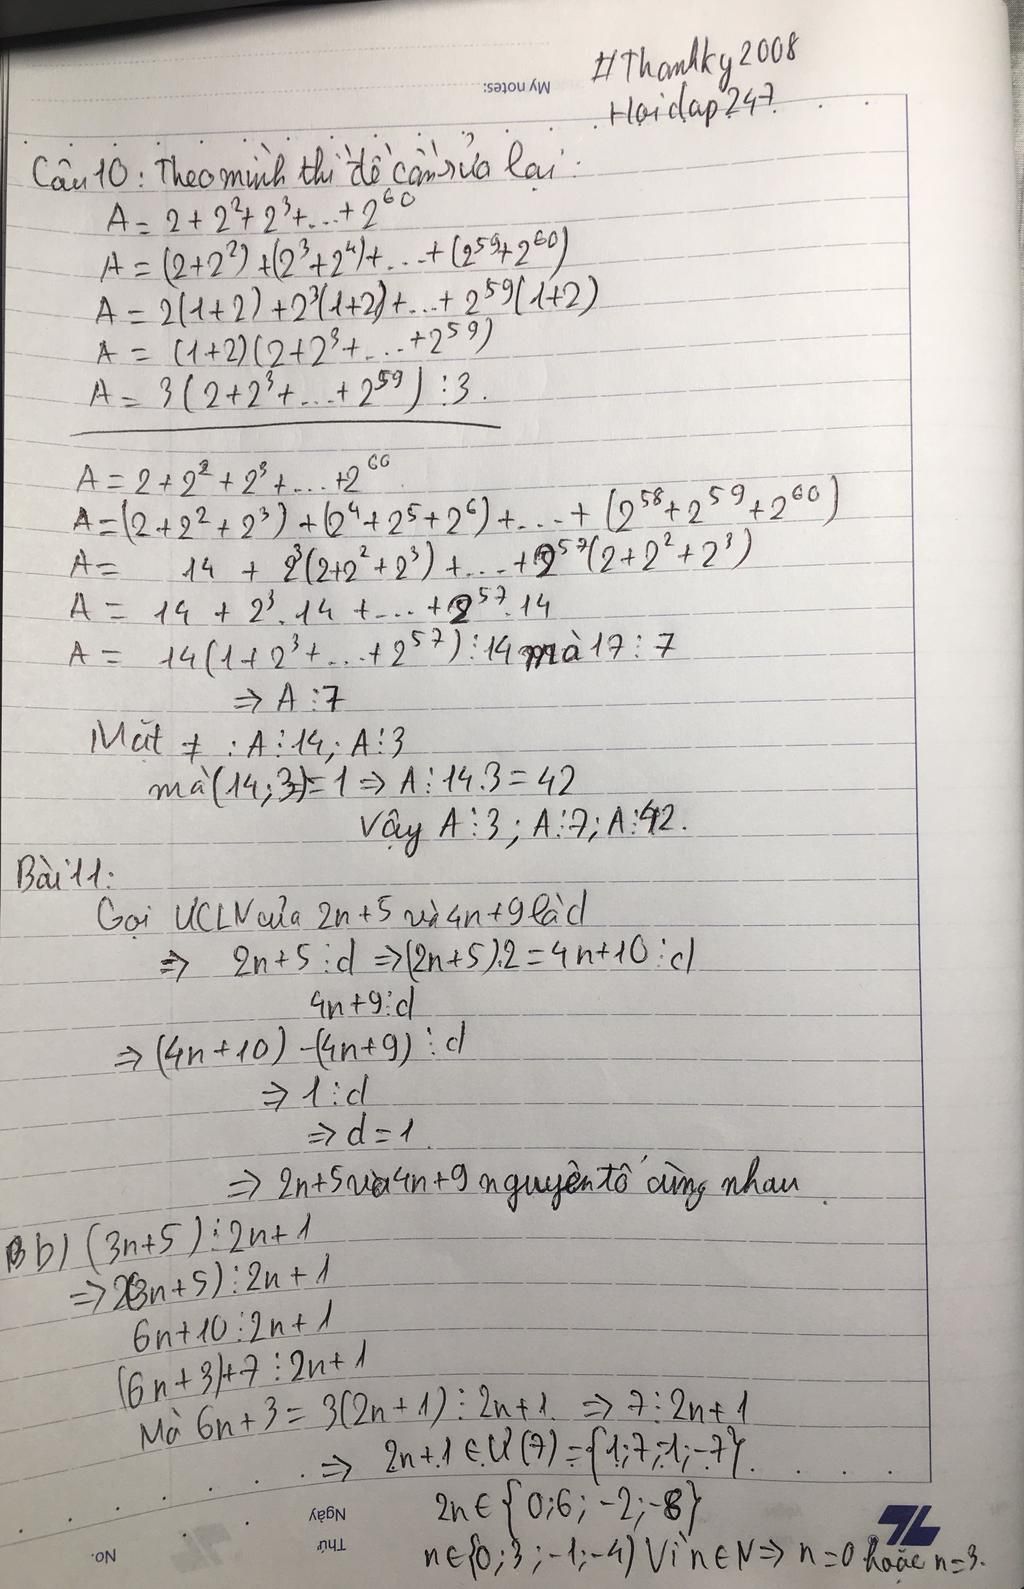 #Thanhky2008
My notes:
Hoidap247
Câu 10: Theo mình thì đề cần sửa lại:
A = 2 + 2² + 2³ + ... + 2⁶⁰
A = (2+2²) + (2³+2⁴) + ... + (2⁵⁹+2⁶⁰)
A = 2(1+2) + 2³(1+2) + ... + 2⁵⁹(1+2)
A = (1+2)(2+2³+...+2⁵⁹)
A = 3(2+2³+...+2⁵⁹) ⋮ 3.
A = 2 + 2² + 2³ + ... + 2⁶⁰
A = (2+2²+2³) + (2⁴+2⁵+2⁶) + ... + (2⁵⁸+2⁵⁹+2⁶⁰)
A = 14 + 2³(2+2²+2³) + ... + 2⁵⁷(2+2²+2³)
A = 14 + 2³.14 + ... + 2⁵⁷.14
A = 14(1+2³+...+2⁵⁷) ⋮ 14 mà 17 ⋮ 7
⇒ A ⋮ 7
Mặt ≠ : A ⋮ 14; A ⋮ 3
mà (14;3) = 1 ⇒ A ⋮ 14.3 = 42
Vậy A ⋮ 3; A ⋮ 7; A ⋮ 42.
Bài 11:
Gọi ƯCLN của 2n+5 và 4n+9 là d
⇒ 2n+5 ⋮ d ⇒ (2n+5).2 = 4n+10 ⋮ d
4n+9 ⋮ d
⇒ (4n+10) - (4n+9) ⋮ d
⇒ 1 ⋮ d
⇒ d = 1.
⇒ 2n+5 và 4n+9 nguyên tố cùng nhau.
b) (3n+5) ⋮ 2n+1
⇒ 2(3n+5) ⋮ 2n+1
6n+10 ⋮ 2n+1
(6n+3)+7 ⋮ 2n+1
Mà 6n+3 = 3(2n+1) ⋮ 2n+1 ⇒ 7 ⋮ 2n+1
⇒ 2n+1 ∈ Ư(7) = {1;7;-1;-7}
2n ∈ {0;6;-2;-8}
n ∈ {0;3;-1;-4) Vì n ∈ N ⇒ n=0 hoặc n=3.
Ngày
Thứ
No.